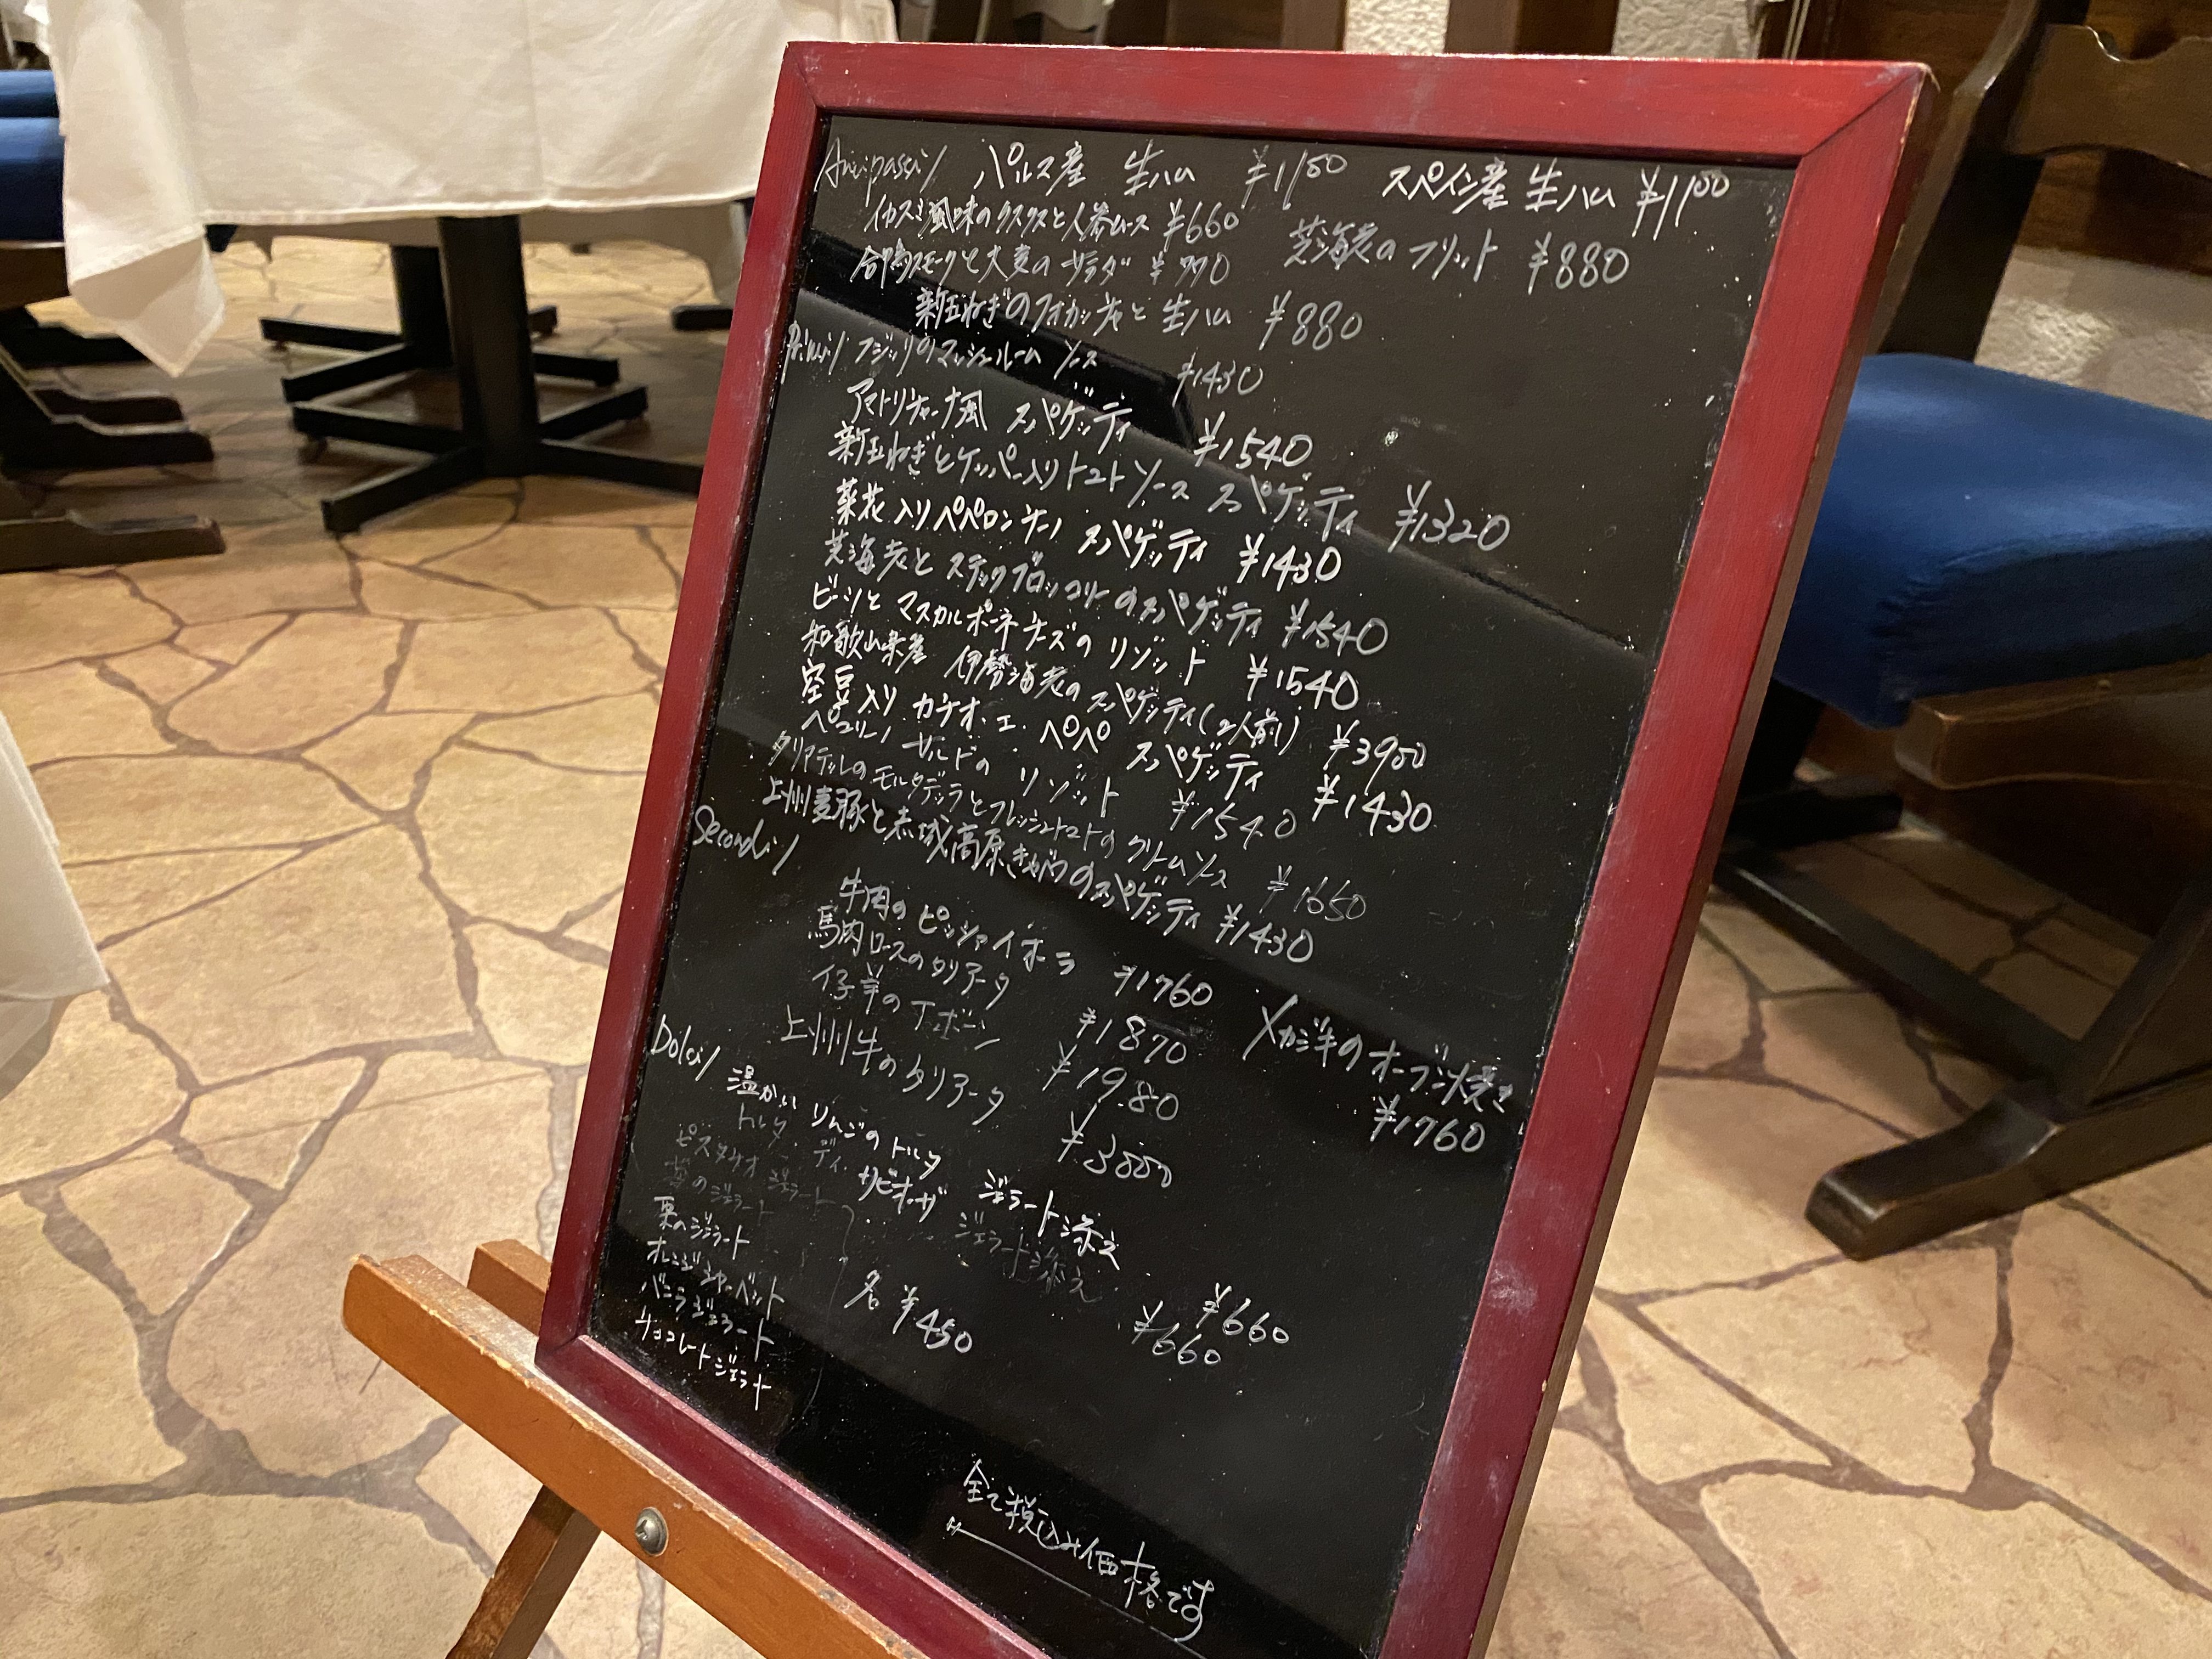 Antipasti パルマ産 生ハム ¥1100 スペイン産 生ハム ¥1100
イカスミ風味のクスクスと人参ムース ¥660 芝海老のフリット ¥880
合鴨スモークと大麦のサラダ ¥770
新玉ねぎのフォカッチャと生ハム ¥880
Primi フジッリのマッシュルームソース ¥1430
アマトリチャーナ風 スパゲッティ ¥1540
新玉ねぎとケッパー入りトマトソース スパゲッティ ¥1320
菜花入りペペロンチーノ スパゲッティ ¥1430
芝海老とスティックブロッコリーのスパゲッティ ¥1540
ビーツとマスカルポーネチーズのリゾット ¥1540
和歌山県産 伊勢海老のスパゲッティ(2人前) ¥3900
空豆入り カチオ・エ・ペペ スパゲッティ ¥1430
ペコリーノサルドのリゾット ¥1540
タリアテッレのモルタデッラとフレッシュトマトのクリームソース ¥1650
上州麦豚と赤城高原きゃべつのスパゲッティ ¥1430
Secondi
牛肉のピッツァイオーラ ¥1760 メカジキのオーブン焼き
馬肉ロースのタリアータ ¥1870 ¥1760
仔羊のTボーン ¥1980
上州牛のタリアータ ¥3000
Dolci 温かいりんごのトルタ ジェラート添え ¥660
トルタ・ディ・サビオーザ ジェラート添え ¥660
ピスタチオジェラート
のジェラート
栗のジェラート
オレンジシャーベット 各 ¥450
バニラジェラート
チョコレートジェラート
全て税込み価格です